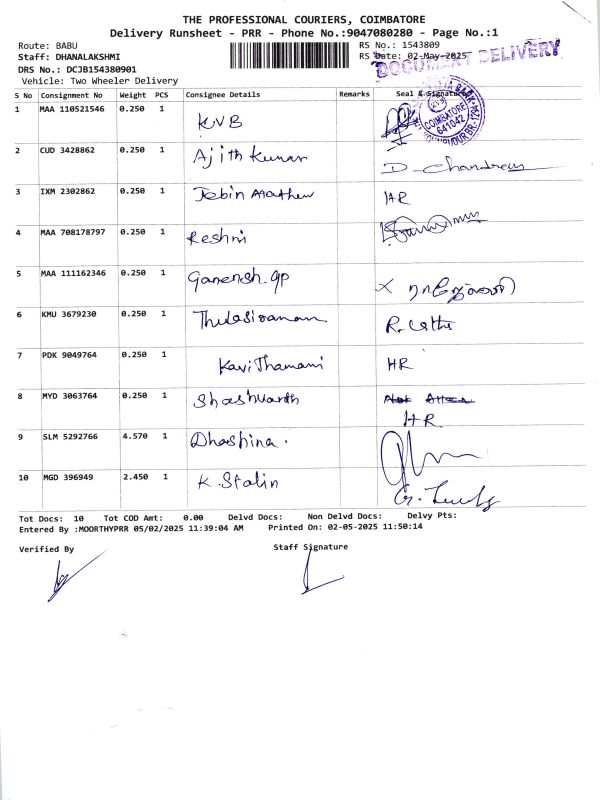 THE PROFESSIONAL COURIERS, COIMBATORE
Delivery Runsheet - PRR - Phone No.:9047080280 - Page No.:1
Route: BABU
RS No.: 1543809
Staff: DHANALAKSHMI
RS Date: 02-May-2025
DOCUMENT DELIVERY
DRS No.: DCJB154380901
Vehicle: Two Wheeler Delivery
S No Consignment No Weight PCS Consignee Details Remarks Seal & Signature
1 MAA 110521546 0.250 1 KVB
COIMBATORE
641042
2 CUD 3428862 0.250 1 Ajith Kumar D. Chandran
3 IXM 2302862 0.250 1 Jebin Mathew HR
4 MAA 708178797 0.250 1 Reshmi
5 MAA 111162346 0.250 1 Ganensh. gp X
6 KMU 3679230 0.250 1 Thulasiraman R. Latha
7 PDK 9049764 0.250 1 Kavithamani HR
8 MYD 3063764 0.250 1 Shashvarth
HR
9 SLM 5292766 4.570 1 Dhashina.
10 MGD 396949 2.450 1 K. Stalin
Tot Docs: 10 Tot COD Amt: 0.00 Delvd Docs: Non Delvd Docs: Delvy Pts:
Entered By :MOORTHYPRR 05/02/2025 11:39:04 AM Printed On: 02-05-2025 11:50:14
Verified By Staff Signature